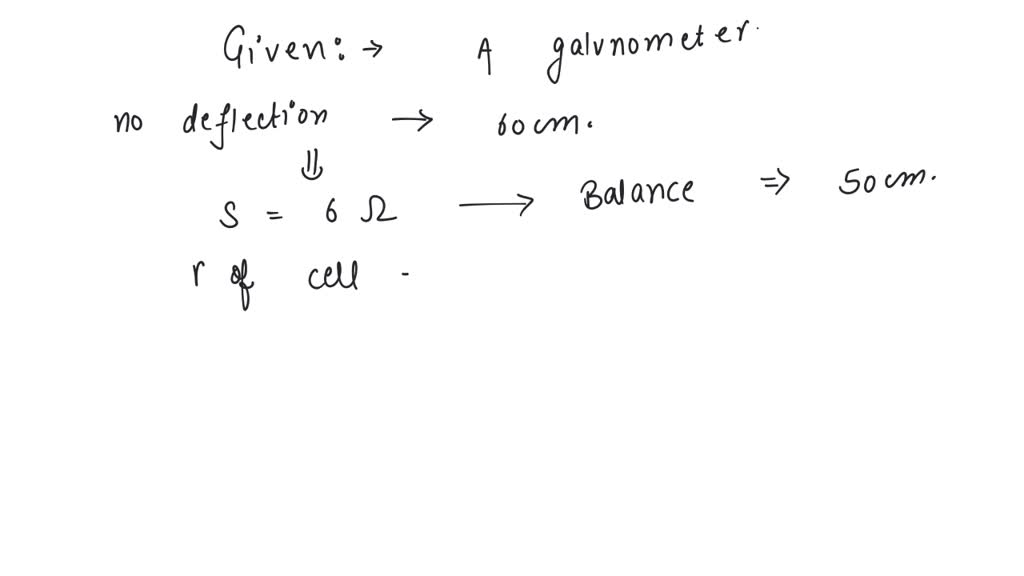 Given: → A galvnometer.
no deflection → 60 cm.
⇓
S = 6 Ω → Balance ⇒ 50 cm.
r of cell -